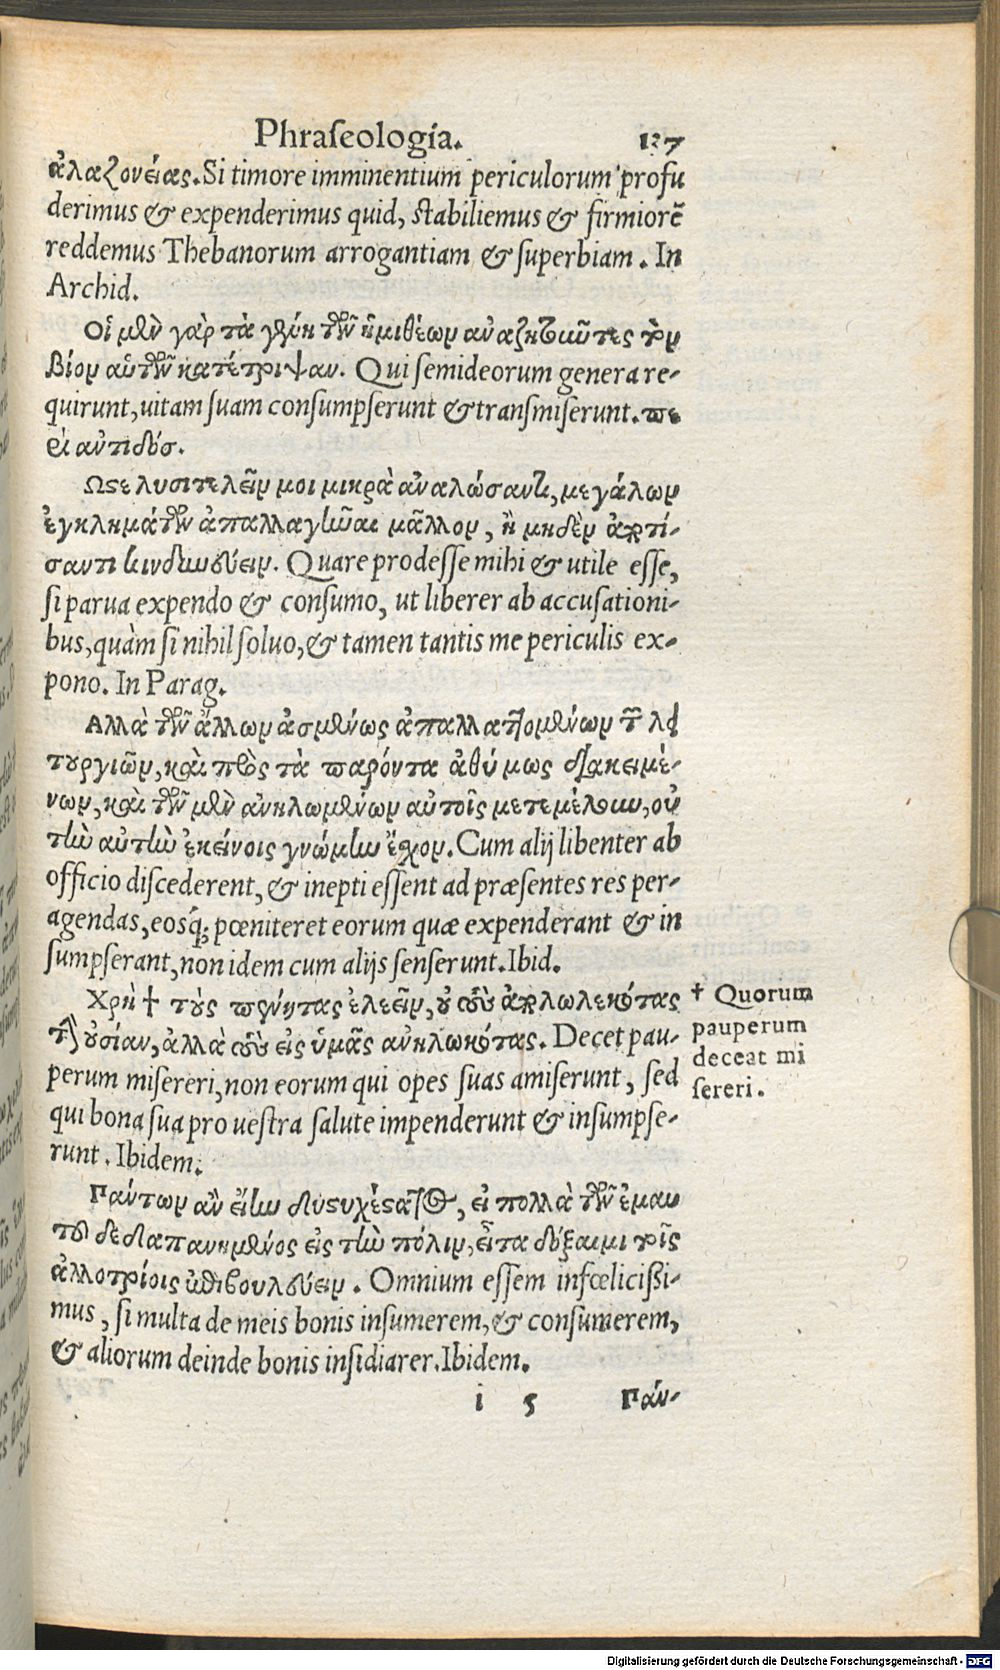 Phraſeologia. 137
ἀλαζονείας. Si timore imminentium periculorum profu
derimus & expenderimus quid, ſtabiliemus & firmiorē
reddemus Thebanorum arrogantiam & ſuperbiam. In
Archid.
Οἱ μὲν γὰρ τὰ γένη τῶν ἡμιθέων ἀναζητοῦντες τὸν
βίον αὑτῶν κατέτριψαν. Qui ſemideorum genera re-
quirunt, uitam ſuam conſumpſerunt & tranſmiſerunt. πε
ρὶ ἀντιδόσ.
Ωςε λυσιτελεῖν μοι μικρὰ ἀναλώσαντι, μεγάλων
ἐγκλημάτων ἀπαλλαγῆναι μᾶλλον, ἢ μηδὲν ἀποτί-
σαντι κινδυνεύειν. Quare prodeſſe mihi & utile eſſe,
ſi parua expendo & conſumo, ut liberer ab accuſationi-
bus, quàm ſi nihil ſoluo, & tamen tantis me periculis ex-
pono. In Parag.
Αλλὰ τῶν ἄλλων ἀσμένως ἀπαλλαττομένων τῶν λει
τουργιῶν, καὶ πρὸς τὰ παρόντα ἀθύμως διακειμέ-
νων, καὶ τῶν μὲν ἀνηλωμένων αὐτοῖς μετεμέλησεν, οὐ
τὴν αὐτὴν ἐκείνοις γνώμην ἔχον. Cum alij libenter ab
officio diſcederent, & inepti eſſent ad præſentes res per-
agendas, eosq́; pœniteret eorum quæ expenderant & in
ſumpſerant, non idem cum alijs ſenſerunt. Ibid.
Χρὴ † τοὺς πένητας ἐλεεῖν, οὐ τοὺς ἀπολωλεκότας
τὴν οὐσίαν, ἀλλὰ τοὺς εἰς ὑμᾶς ἀνηλωκότας. Decet pau-
perum miſereri, non eorum qui opes ſuas amiſerunt, ſed
qui bona ſua pro ueſtra ſalute impenderunt & inſumpſe-
runt. Ibidem.
† Quorum
pauperum
deceat mi
ſereri.
Πάντων ἂν εἴην δυςυχέςατος, εἰ πολλὰ τῶν ἐμαυ
τοῦ δεδαπανημένος εἰς τὴν πόλιν, εἶτα δόξαιμι τοῖς
ἀλλοτρίοις ἐπιβουλεύειν. Omnium eſſem infœliciſſi-
mus, ſi multa de meis bonis inſumerem, & conſumerem,
& aliorum deinde bonis inſidiarer. Ibidem.
i 5 Πάν-
Digitalisierung gefördert durch die Deutsche Forschungsgemeinschaft - DFG